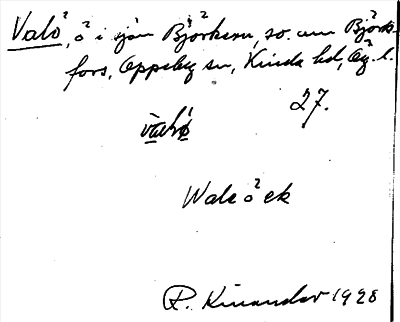 Valö, ö i sjön Björkern, so. om Björk-
fors, Oppeby sn, Kinda hd, Ög. l.
27.
Waleö ek
R. Kinander 1928